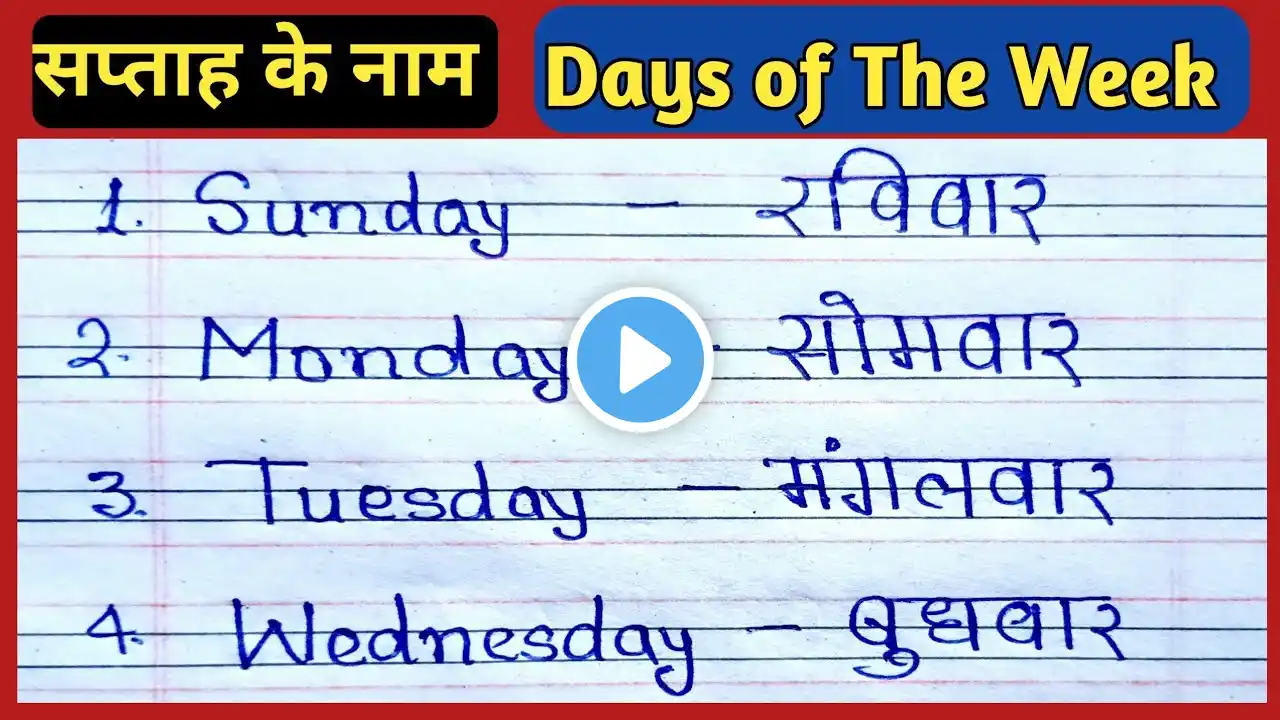 सप्ताह के नाम Days of The Week
1. Sunday – रविवार
2. Monday - सोमवार
3. Tuesday – मंगलवार
4. Wednesday – बुधवार